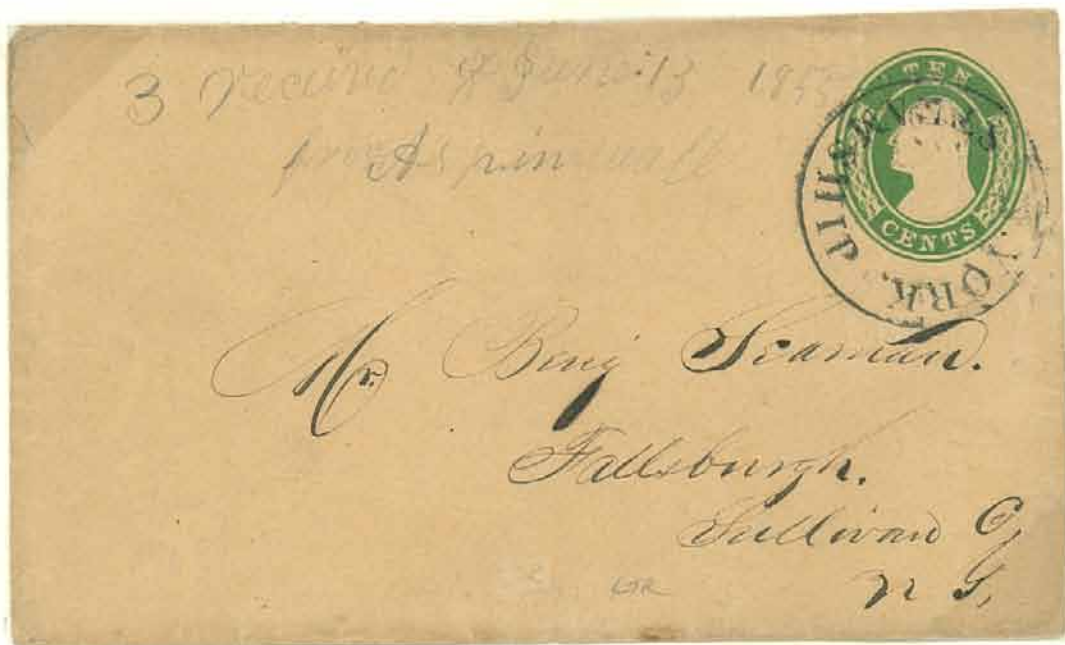 3 received June 13 1855
from Aspinwall
TEN
CENTS
STEAMSHIP
YORK.
Mr. Benj Seaman.
Fallsburgh.
Sullivan Cy
N Y,